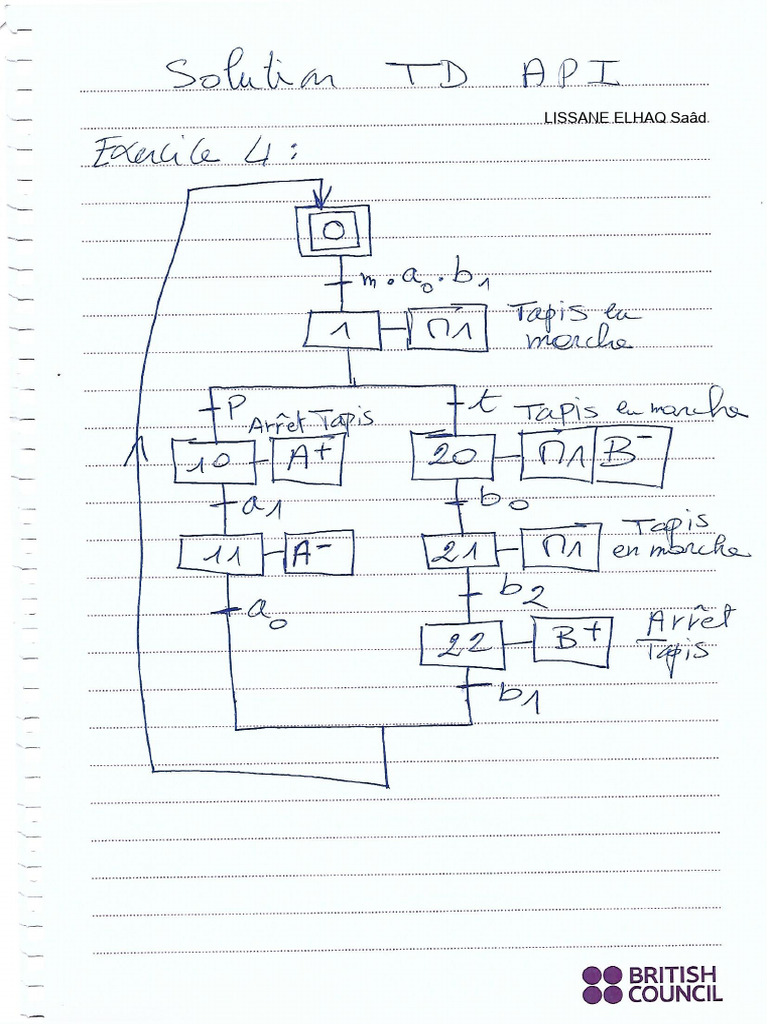 Solution TD API
LISSANE ELHAQ Saâd
Exercice 4 :
0
m . a0 . b1
1 M1 Tapis en
marche
P t Tapis en marche
Arrêt Tapis
10 A+ 20 M1 B-
a1 b0
11 A- 21 M1 Tapis
en marche
a0 b2
22 B+ Arrêt
Tapis
b1
BRITISH
COUNCIL